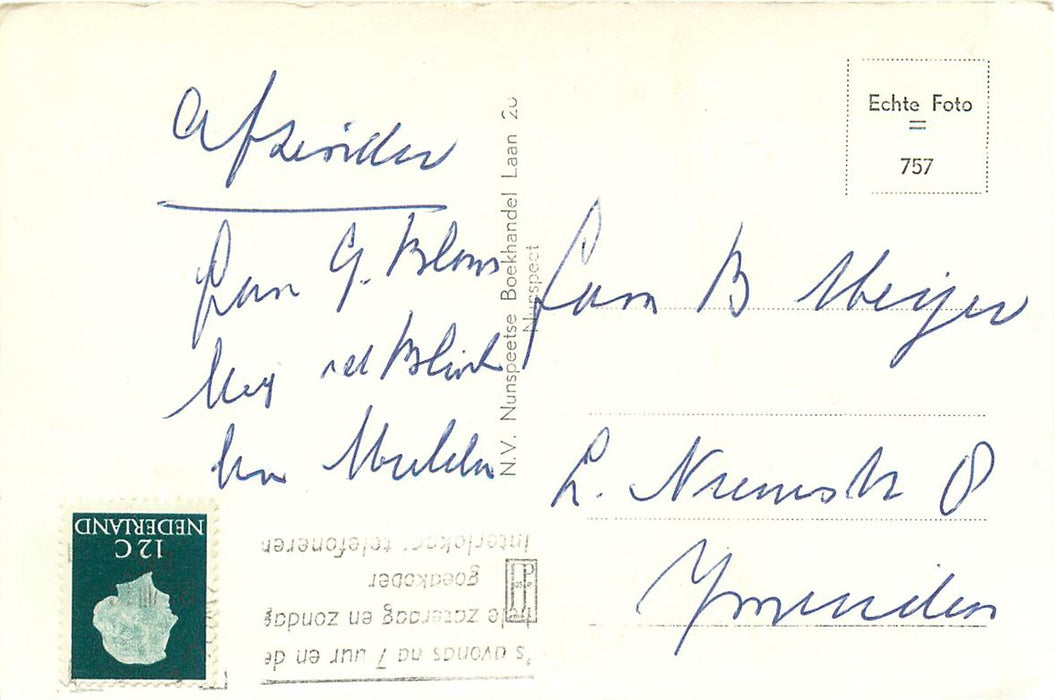 Afzender
Fam G. Blom
Mej
Mulder
N.V. Nunspeetse Boekhandel Laan 20
Nunspeet
Echte Foto
=
757
Fam B Meijer
8
Ymuiden
NEDERLAND
12 C
's avonds na 7 uur en de
hele zaterdag en zondag
goedkoper
interlokaal telefoneren